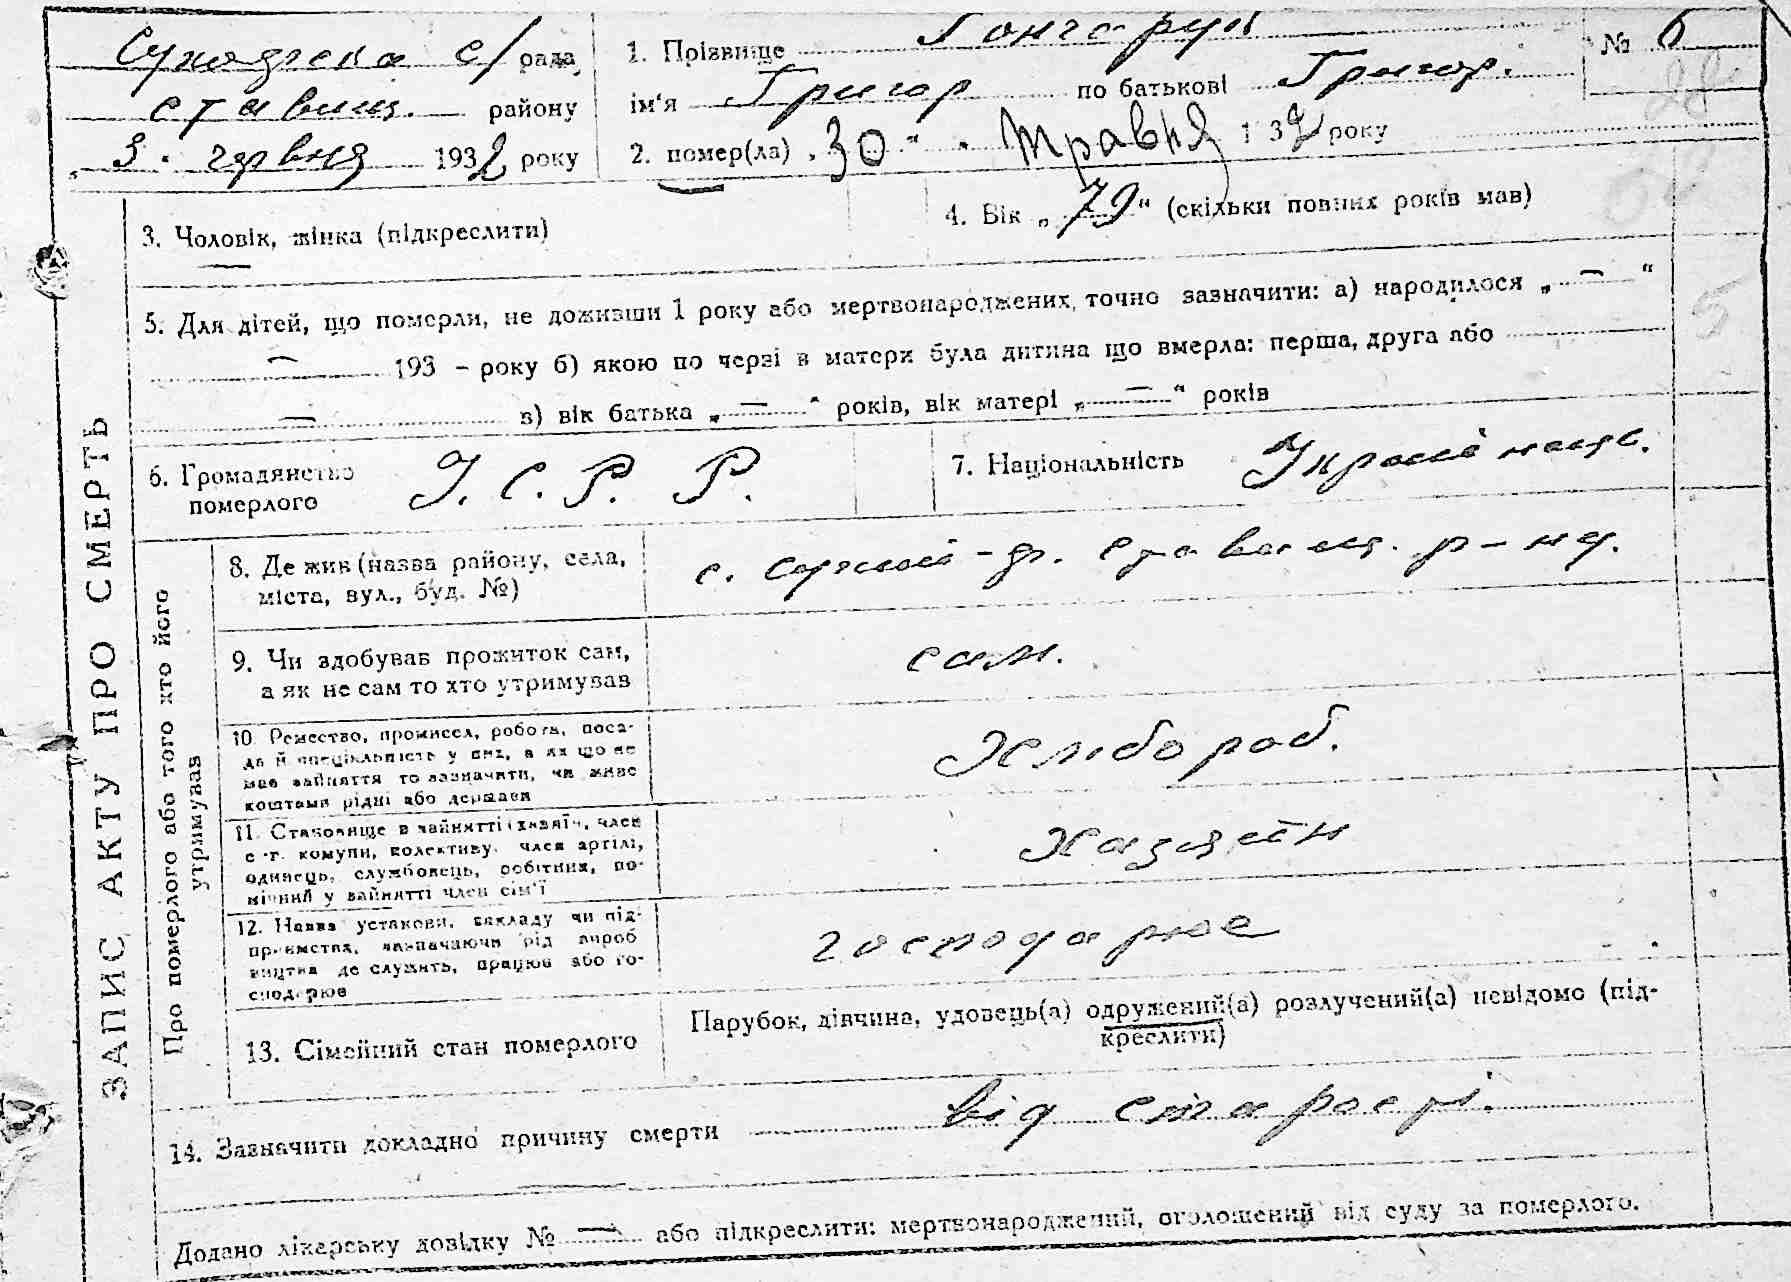 Сухоярска с/рада
ставищ. району
„ 3 . червня 1932 року
1. Прізвище Гончарук
ім'я Григор по батькові Григор.
2. помер(ла) „ 30 “ травня 1932 року
№ 6
3. Чоловік, жінка (підкреслити)
4. Вік „ 79 “ (скільки повних років мав)
5. Для дітей, що померли, не доживши 1 року або мертвонароджених, точно зазначити: а) народилося „ — “
— 193 - року б) якою по черзі в матери була дитина що вмерла: перша, друга або
— в) вік батька „ — “ років, вік матері „ — “ років
6. Громадянство
померлого
У. С. Р. Р.
7. Національність Україненць.
ЗАПИС АКТУ ПРО СМЕРТЬ
Про померлого або того хто його
утримував
8. Де жив (назва району, села,
міста, вул., буд. №)
с. Ставищ. р-на.
9. Чи здобував прожиток сам,
а як не сам то хто утримував
сам.
10. Ремество, промисел, робота, поса-
да й спеціяльність у них, а як що не
мав зайняття то зазначити, чи живе
коштами рідні або держави
Хлібороб.
11. Становище в зайнятті (хазяїн, член
с.-г. комуни, колективу, член артілі,
одинець, службовець, робітник, по-
мічний у зайнятті член сім'ї
Хазяїн
12. Назва установи, закладу чи під-
приємства, зазначаючи рід вироб
ництва де служить, працює або го-
сподарює
господарює
13. Сімейний стан померлого
Парубок, дівчина, удовець(а) одружений(а) розлучений(а) невідомо (під-
креслити)
14. Зазначити докладно причину смерти від старості.
Додано лікарську довідку № — або підкреслити: мертвонароджений, оголошений від суду за померлого.